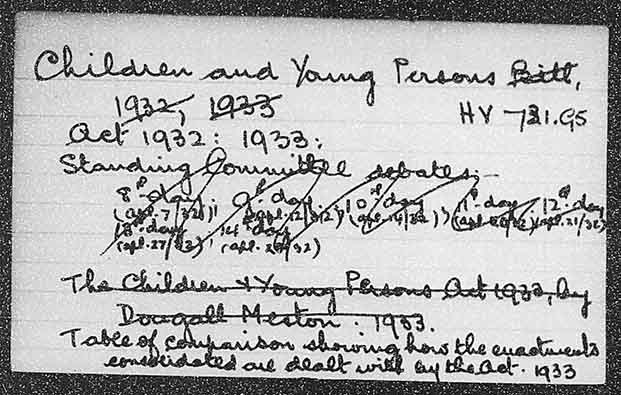 Children and Young Persons Bill,
1932, 1933
HV 721.G5
Act 1932: 1933:
Standing Committee debates:-
8th day, 9th day, 10th day, 11th day, 12th day
(apl. 7/32), (apl. 12/32), (apl. 14/32), (apl. 20/32), (apl. 21/32)
13th day, 14th day
(apl. 27/32), (apl. 28/32)
The Children & Young Persons Act 1933, by
Dougall Meston. 1933.
Table of comparison showing how the enactments
consolidated are dealt with by the Act. 1933